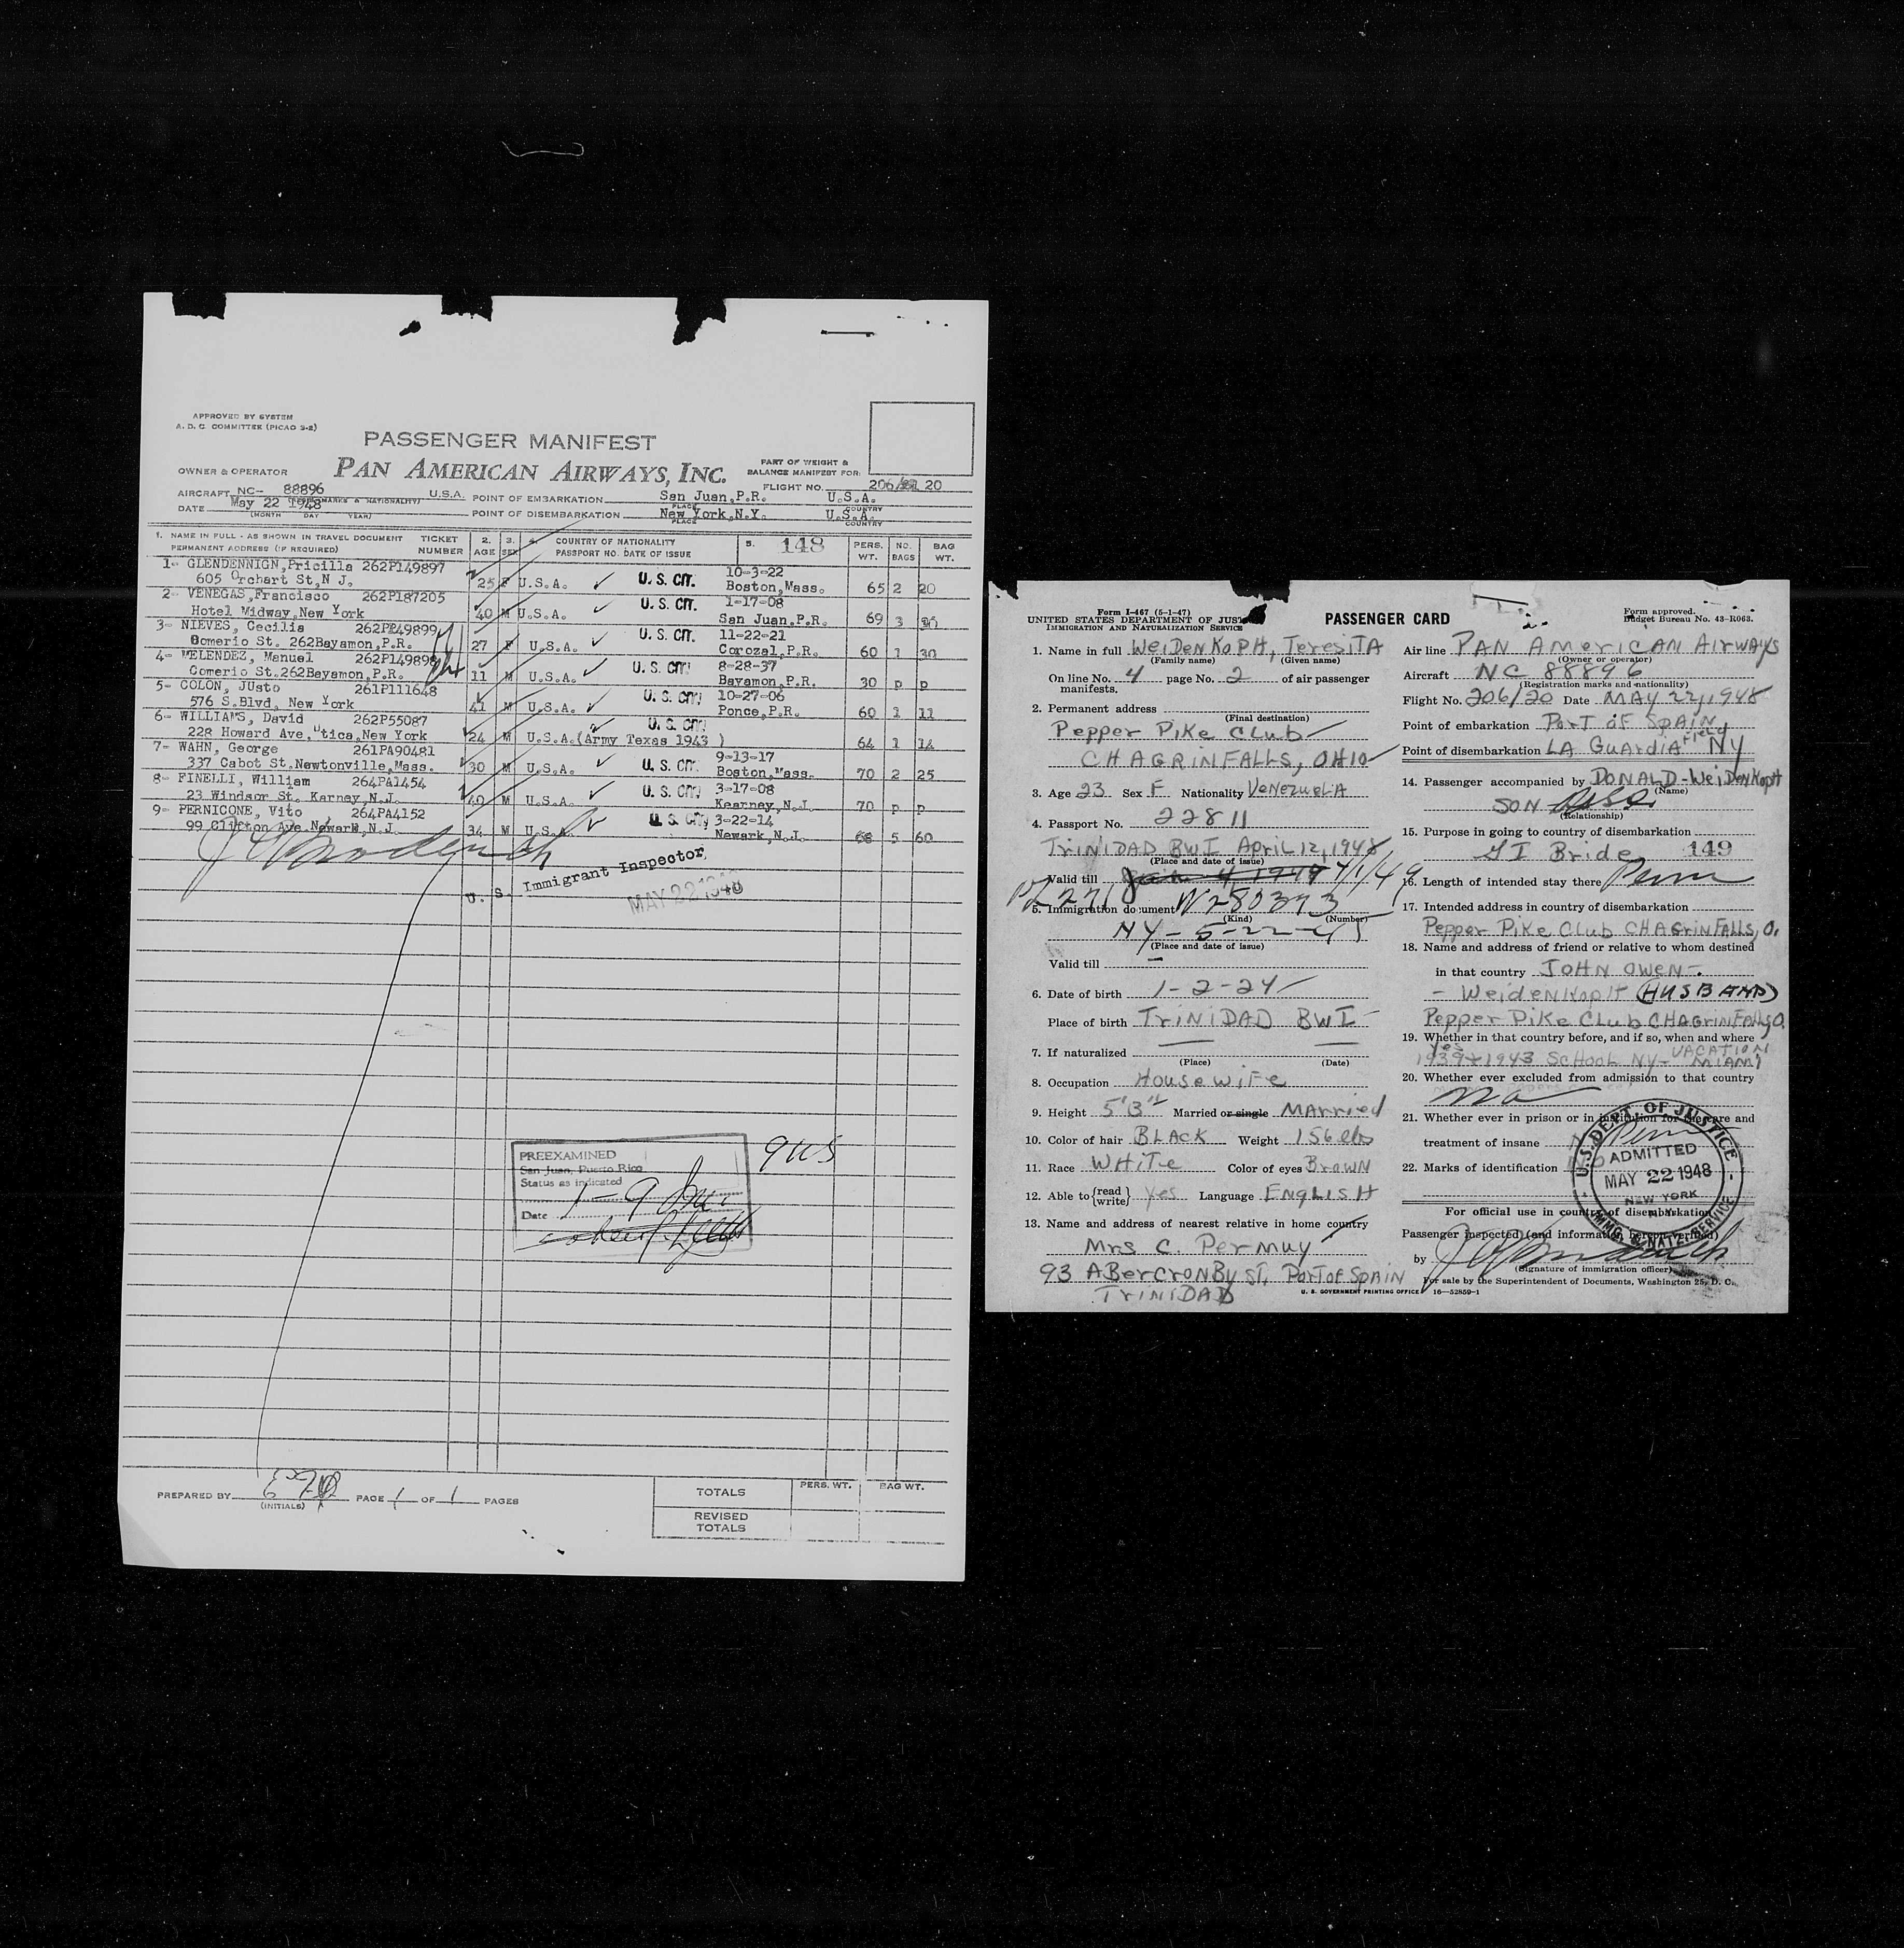 APPROVED BY SYSTEM
A. D. C. COMMITTEE (PICAO 3-2)
PASSENGER MANIFEST
OWNER & OPERATOR PAN AMERICAN AIRWAYS, INC.
PART OF WEIGHT &
BALANCE MANIFEST FOR:
FLIGHT NO. 206/ 20
AIRCRAFT NC- 88896 U.S.A. POINT OF EMBARKATION San Juan,P.R. U.S.A.
(MARKS & NATIONALITY) PLACE COUNTRY
DATE May 22 1948 POINT OF DISEMBARKATION New York,N.Y. U.S.A.
(MONTH DAY YEAR) PLACE COUNTRY
1. NAME IN FULL - AS SHOWN IN TRAVEL DOCUMENT TICKET 2. 3. 4. COUNTRY OF NATIONALITY 5. 148 PERS. NO. BAG
PERMANENT ADDRESS (IF REQUIRED) NUMBER AGE SEX PASSPORT NO. DATE OF ISSUE WT. BAGS WT.
1- GLENDENNIGN,Pricilla 262P149897 10-3-22
605 Orchart St,N J. 25 F U.S.A. U. S. CIT. Boston,Mass. 65 2 20
2- VENEGAS,Francisco 262P187205 U. S. CIT. 1-17-08
Hotel Midway,New York 40 M U.S.A. San Juan.P.R. 69 3
3- NIEVES, Cecilia 262P149899 U. S. CIT. 11-22-21
Comerio St. 262Bayamon,P.R. 27 F U.S.A. Corozal,P.R. 60 1 30
4- MELENDEZ, Manuel 262P149898 U. S. CIT. 8-28-37
Comerio St.262Bayamon,P.R. 11 M U.S.A. Bayamon,P.R. 30 p p
5- COLON, JUsto 261P111648 U. S. CIT. 10-27-06
576 S.Blvd, New York 41 M U.S.A. Ponce,P.R. 60 1 11
6- WILLIAMS, David 262P55087 U. S. CIT.
228 Howard Ave,Utica,New York 24 M U.S.A.(Army Texas 1943 ) 64 1 14
7- WAHN, George 261PA90481 9-13-17
337 Cabot St.Newtonville,Mass. 30 M U.S.A. U. S. CIT. Boston,Mass. 70 2 25
8- FINELLI, William 264PA1454 U. S. CIT. 3-17-08
23 Windsor St. Karney,N.J. 40 M U.S.A. Kearney,N.J. 70 p p
9- PERNICONE, Vito 264PA4152 U. S. CIT. 3-22-14
99 Clifton Ave.Newark,N.J 34 M U.S.A. Newark,N.J. 68 5 60
U. S. Immigrant Inspector
MAY 22 1948
PREEXAMINED
San Juan, Puerto Rico
Status as indicated
1-9
Date
9 US
PREPARED BY PAGE 1 OF 1 PAGES
(INITIALS)
TOTALS PERS. WT. BAG WT.
REVISED
TOTALS
Form I-467 (5-1-47)
UNITED STATES DEPARTMENT OF JUST
IMMIGRATION AND NATURALIZATION SERVICE
PASSENGER CARD
Form approved.
Budget Bureau No. 43-R063.
1. Name in full WeiDenKopH, TeresiTA
(Family name) (Given name)
On line No. 4 page No. 2 of air passenger
manifests.
2. Permanent address
(Final destination)
Pepper Pike Club
CHAGRIN FALLS, OHIO
3. Age 23 Sex F Nationality VeNezueLA
4. Passport No. 22811
TriNiDAD BWI April 12, 1948
(Place and date of issue)
Valid till 4/1/49
5. Immigration document
(Kind) (Number)
(Place and date of issue)
Valid till —
6. Date of birth 1-2-24
Place of birth TriNiDAD BWI
7. If naturalized
(Place) (Date)
8. Occupation Housewife
9. Height 5'3" Married or single MArried
10. Color of hair BLACK Weight 156 lbs
11. Race WHiTe Color of eyes BrowN
12. Able to {read write} Yes Language ENgLISH
13. Name and address of nearest relative in home country
Mrs C. Permuy
93 ABercroNBy ST, PorT oF SpAiN
TriNiDAD
Air line PAN AmericAN Airways
(Owner or operator)
Aircraft NC 88896
(Registration marks and nationality)
Flight No. 206/20 Date MAY 22, 1948
Point of embarkation PorT oF SpAiN
Point of disembarkation LA GuArdiA Field NY
14. Passenger accompanied by DONALD-WeiDenkopH
(Name)
SON
(Relationship)
15. Purpose in going to country of disembarkation
GI Bride 149
16. Length of intended stay there Perm
17. Intended address in country of disembarkation
Pepper Pike Club CHAGrinFALLS, O.
18. Name and address of friend or relative to whom destined
in that country JOHN OWEN -
- WeidenKopH (HUSBAND)
Pepper Pike Club CHAGrinFAllS O.
19. Whether in that country before, and if so, when and where
Yes
1939+1943 ScHool NY- VACATION MiAMI
20. Whether ever excluded from admission to that country
No
21. Whether ever in prison or in institution for the care and
treatment of insane
22. Marks of identification
U.S. DEPT. OF JUSTICE
ADMITTED
MAY 22 1948
NEW YORK
N. Y.
IMMG. & NATZ. SERVICE
For official use in country of disembarkation
Passenger inspected (and information hereon verified)
by
(Signature of immigration officer)
For sale by the Superintendent of Documents, Washington 25, D. C.
U. S. GOVERNMENT PRINTING OFFICE 16—52859-1